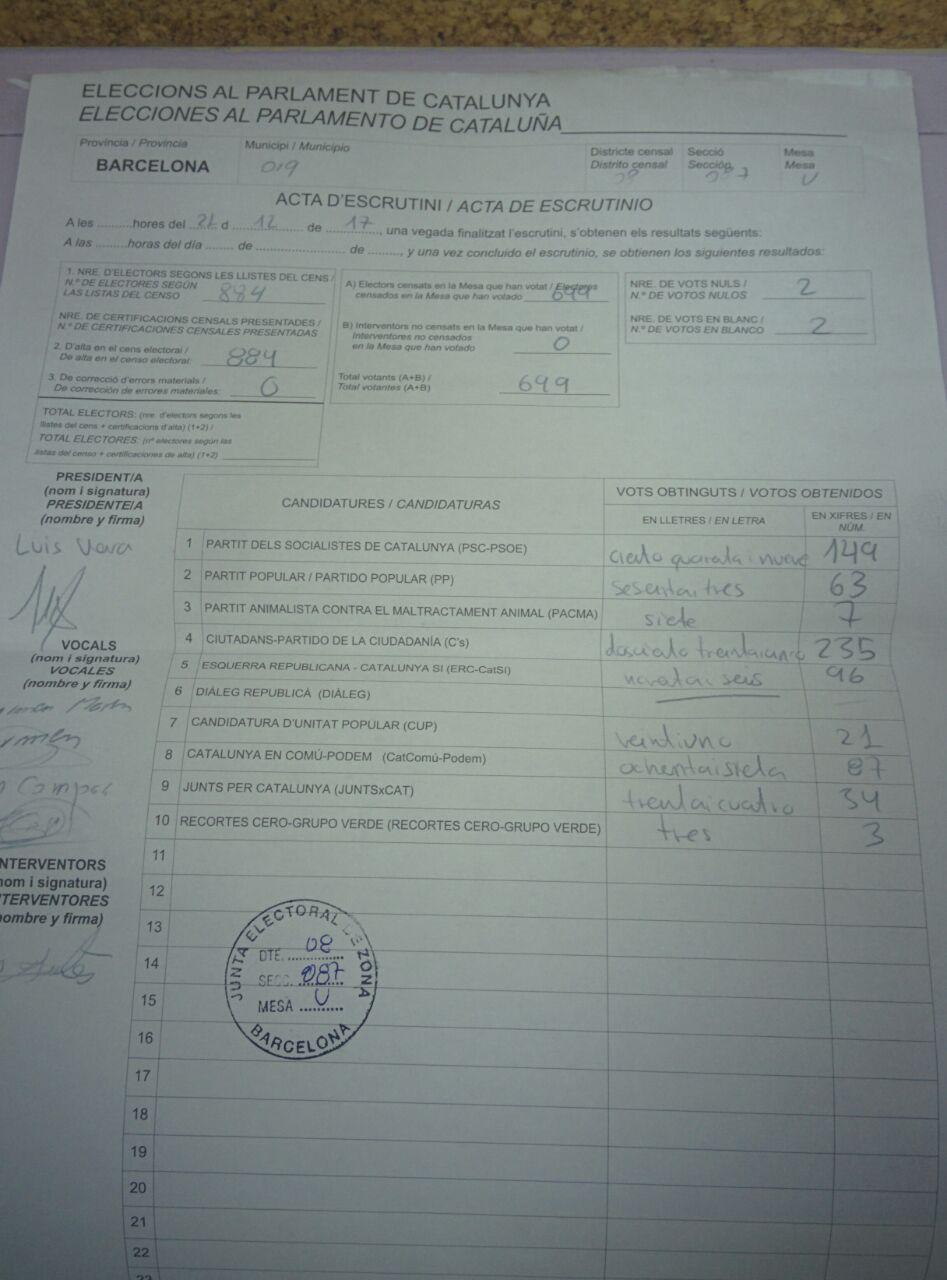 ELECCIONS AL PARLAMENT DE CATALUNYA
ELECCIONES AL PARLAMENTO DE CATALUÑA
Província / Provincia
BARCELONA
Municipi / Municipio
019
Districte censal
Distrito censal
Secció
Sección
Mesa
Mesa
U
ACTA D'ESCRUTINI / ACTA DE ESCRUTINIO
A les ..........hores del 21 d 12 de 17, una vegada finalitzat l'escrutini, s'obtenen els resultats següents:
A las .........horas del día ........ de .............................. de ........., y una vez concluido el escrutinio, se obtienen los siguientes resultados:
1. NRE. D'ELECTORS SEGONS LES LLISTES DEL CENS /
N.º DE ELECTORES SEGÚN
LAS LISTAS DEL CENSO 884
NRE. DE CERTIFICACIONS CENSALS PRESENTADES /
N.º DE CERTIFICACIONES CENSALES PRESENTADAS
2. D'alta en el cens electoral /
De alta en el censo electoral: 884
3. De correcció d'errors materials /
De corrección de errores materiales: 0
TOTAL ELECTORS: (nre. d'electors segons les
llistes del cens + certificacions d'alta) (1+2) /
TOTAL ELECTORES: (nº electores según las
listas del censo + certificaciones de alta) (1+2)
A) Electors censats en la Mesa que han votat / Electores
censados en la Mesa que han votado 699
B) Interventors no censats en la Mesa que han votat /
Interventores no censados
en la Mesa que han votado 0
Total votants (A+B) /
Total votantes (A+B) 699
NRE. DE VOTS NULS /
N.º DE VOTOS NULOS 2
NRE. DE VOTS EN BLANC /
N.º DE VOTOS EN BLANCO 2
PRESIDENT/A
(nom i signatura)
PRESIDENTE/A
(nombre y firma)
Luis Vara
VOCALS
(nom i signatura)
VOCALES
(nombre y firma)
NTERVENTORS
nom i signatura)
TERVENTORES
ombre y firma)
CANDIDATURES / CANDIDATURAS
VOTS OBTINGUTS / VOTOS OBTENIDOS
EN LLETRES / EN LETRA
EN XIFRES / EN
NÚM.
1 PARTIT DELS SOCIALISTES DE CATALUNYA (PSC-PSOE) 149
2 PARTIT POPULAR / PARTIDO POPULAR (PP) sesentaitres 63
3 PARTIT ANIMALISTA CONTRA EL MALTRACTAMENT ANIMAL (PACMA) siete 7
4 CIUTADANS-PARTIDO DE LA CIUDADANÍA (C's) 235
5 ESQUERRA REPUBLICANA - CATALUNYA SI (ERC-CatSI) 96
6 DIÀLEG REPUBLICÀ (DIÀLEG)
7 CANDIDATURA D'UNITAT POPULAR (CUP) veintiuno 21
8 CATALUNYA EN COMÚ-PODEM (CatComú-Podem) ochentaisiete 87
9 JUNTS PER CATALUNYA (JUNTSxCAT) trentaicuatro 34
10 RECORTES CERO-GRUPO VERDE (RECORTES CERO-GRUPO VERDE) tres 3
11
12
13
14
15
16
17
18
19
20
21
22
23
JUNTA ELECTORAL DE ZONA
DTE. 08
SECC. 087
MESA U
BARCELONA